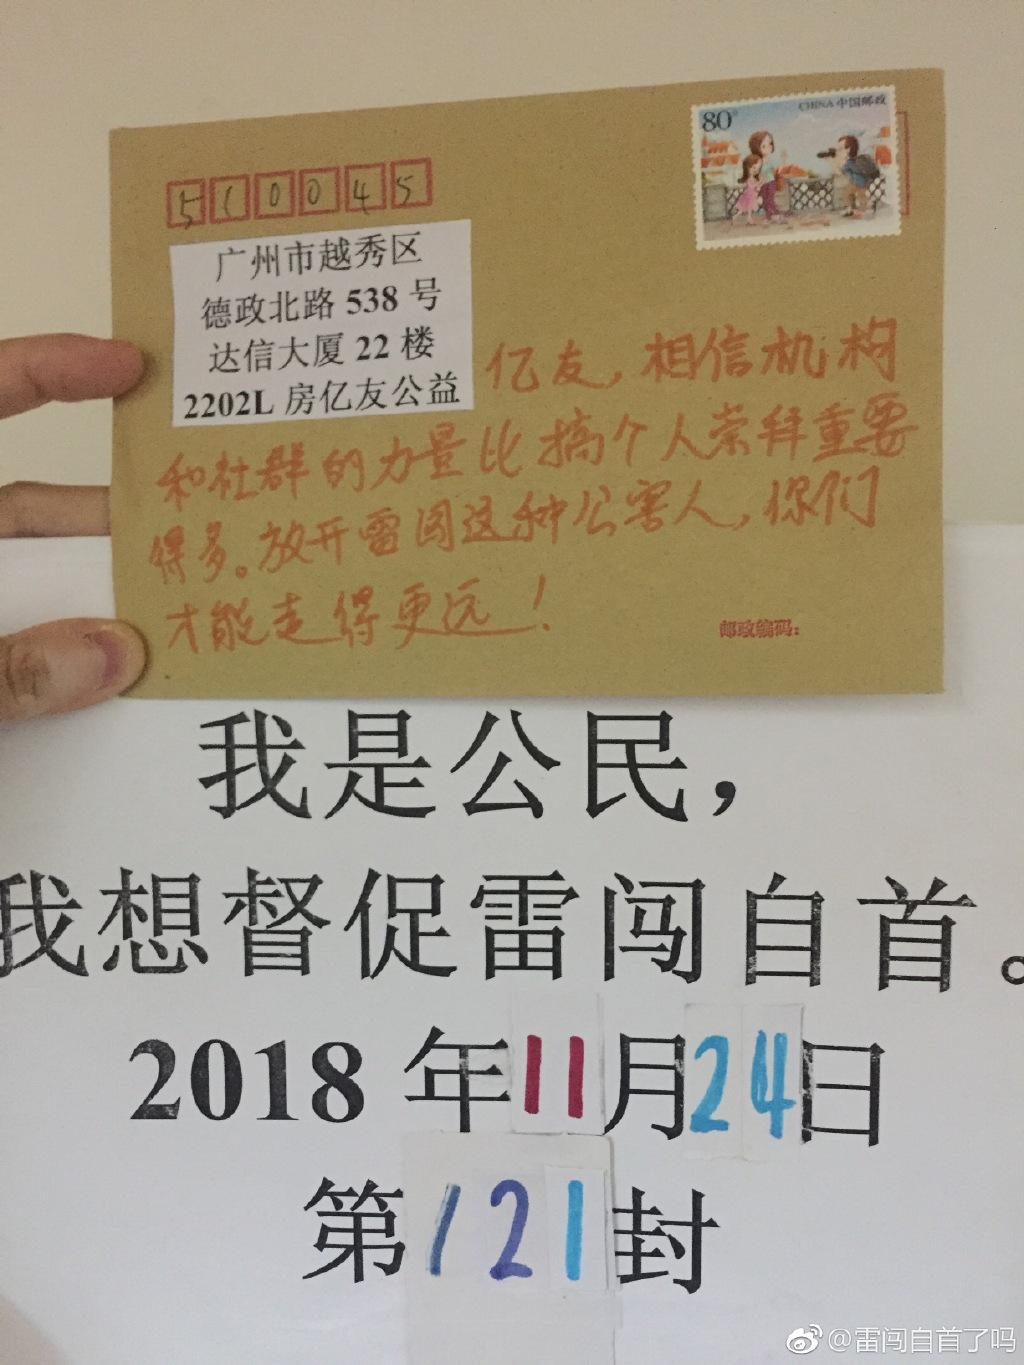 80
CHINA 中国邮政
510045
广州市越秀区
德政北路 538 号
达信大厦 22 楼
2202L 房亿友公益
亿友，相信机构
和社群的力量比搞个人崇拜重要
得多。放开雷闯这种公害人，你们
才能走得更远！
邮政编码：
我是公民，
我想督促雷闯自首。
2018 年 11 月 24 日
第 121 封
@雷闯自首了吗